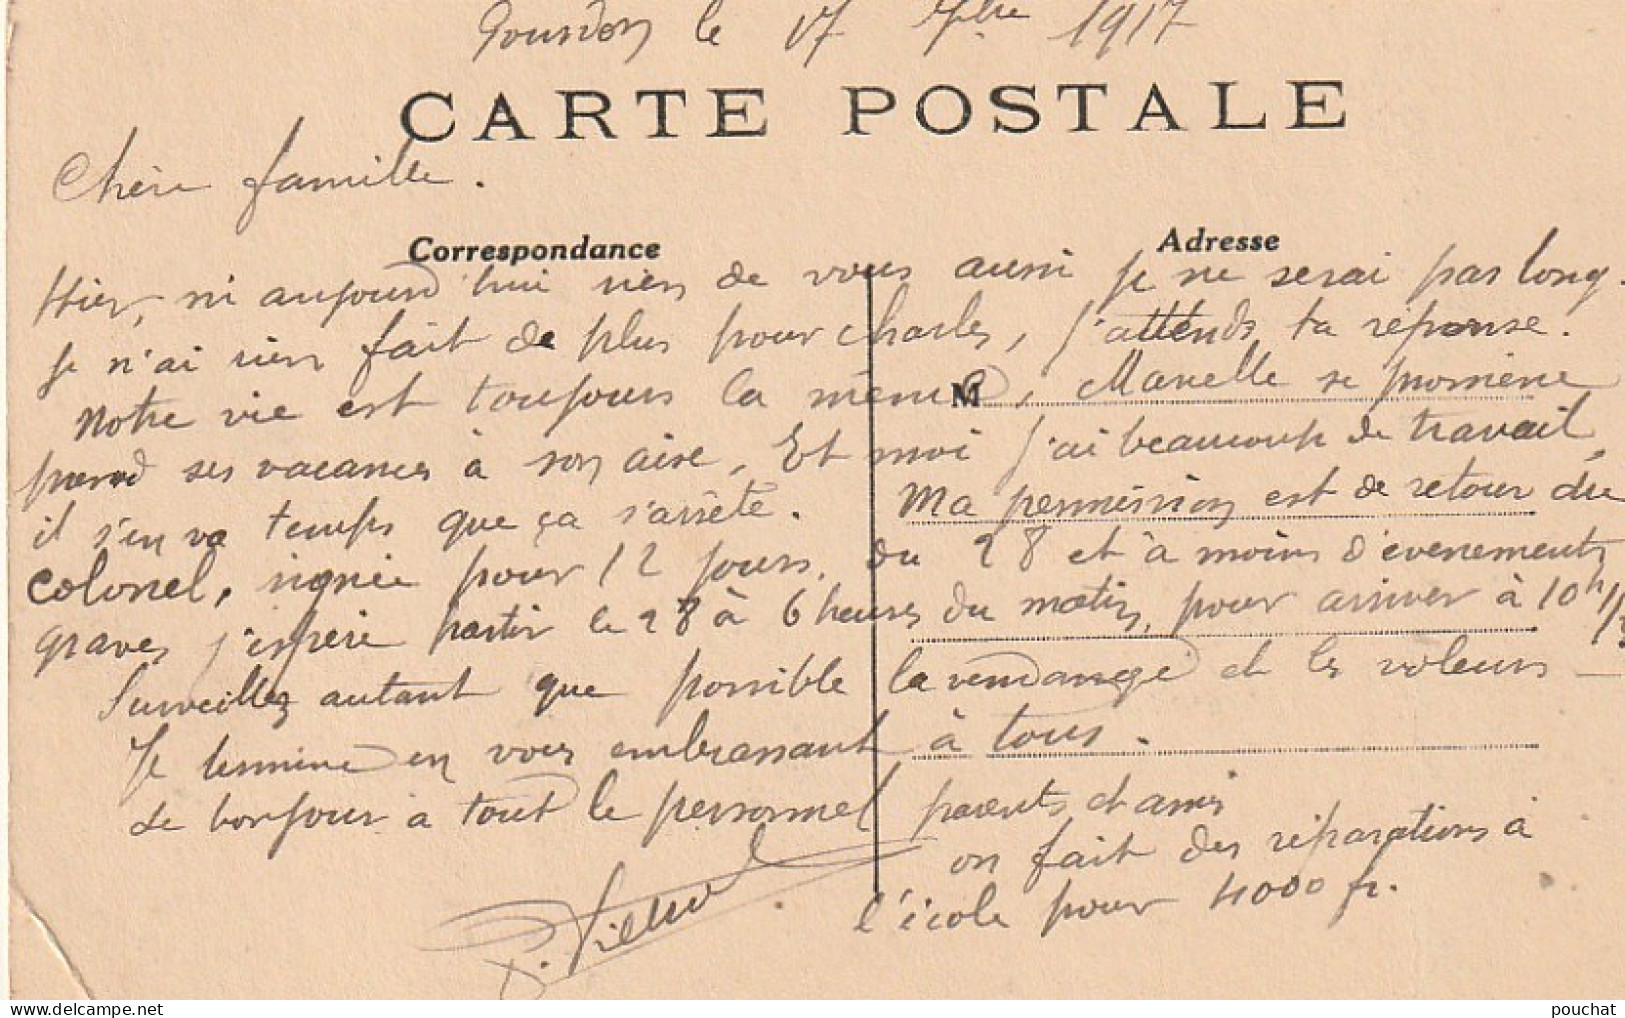 Gourdon le 17 7bre 1917
CARTE POSTALE
Chère famille.
Correspondance
Adresse
Hier, ni aujourd'hui rien de vous aussi je ne serai pas long.
Je n'ai rien fait de plus pour Charles, j'attends ta réponse.
Notre vie est toujours la même, Marcelle se promène
M
prend ses vacances à son aise. Et moi j'ai beaucoup de travail,
il s'en va temps que ça s'arrête. Ma permission est de retour du
Colonel, signée pour 12 jours, du 28 et à moins d'évenements
graves j'espère partir le 28 à 6 heures du matin, pour arriver à 10h 1/2
Surveillez autant que possible la vendange et les voleurs —
Je termine en vous embrassant à tous.
le bonjour à tout le personnel parents et amis
on fait des réparations à
l'école pour 4000 fr.
pouchat